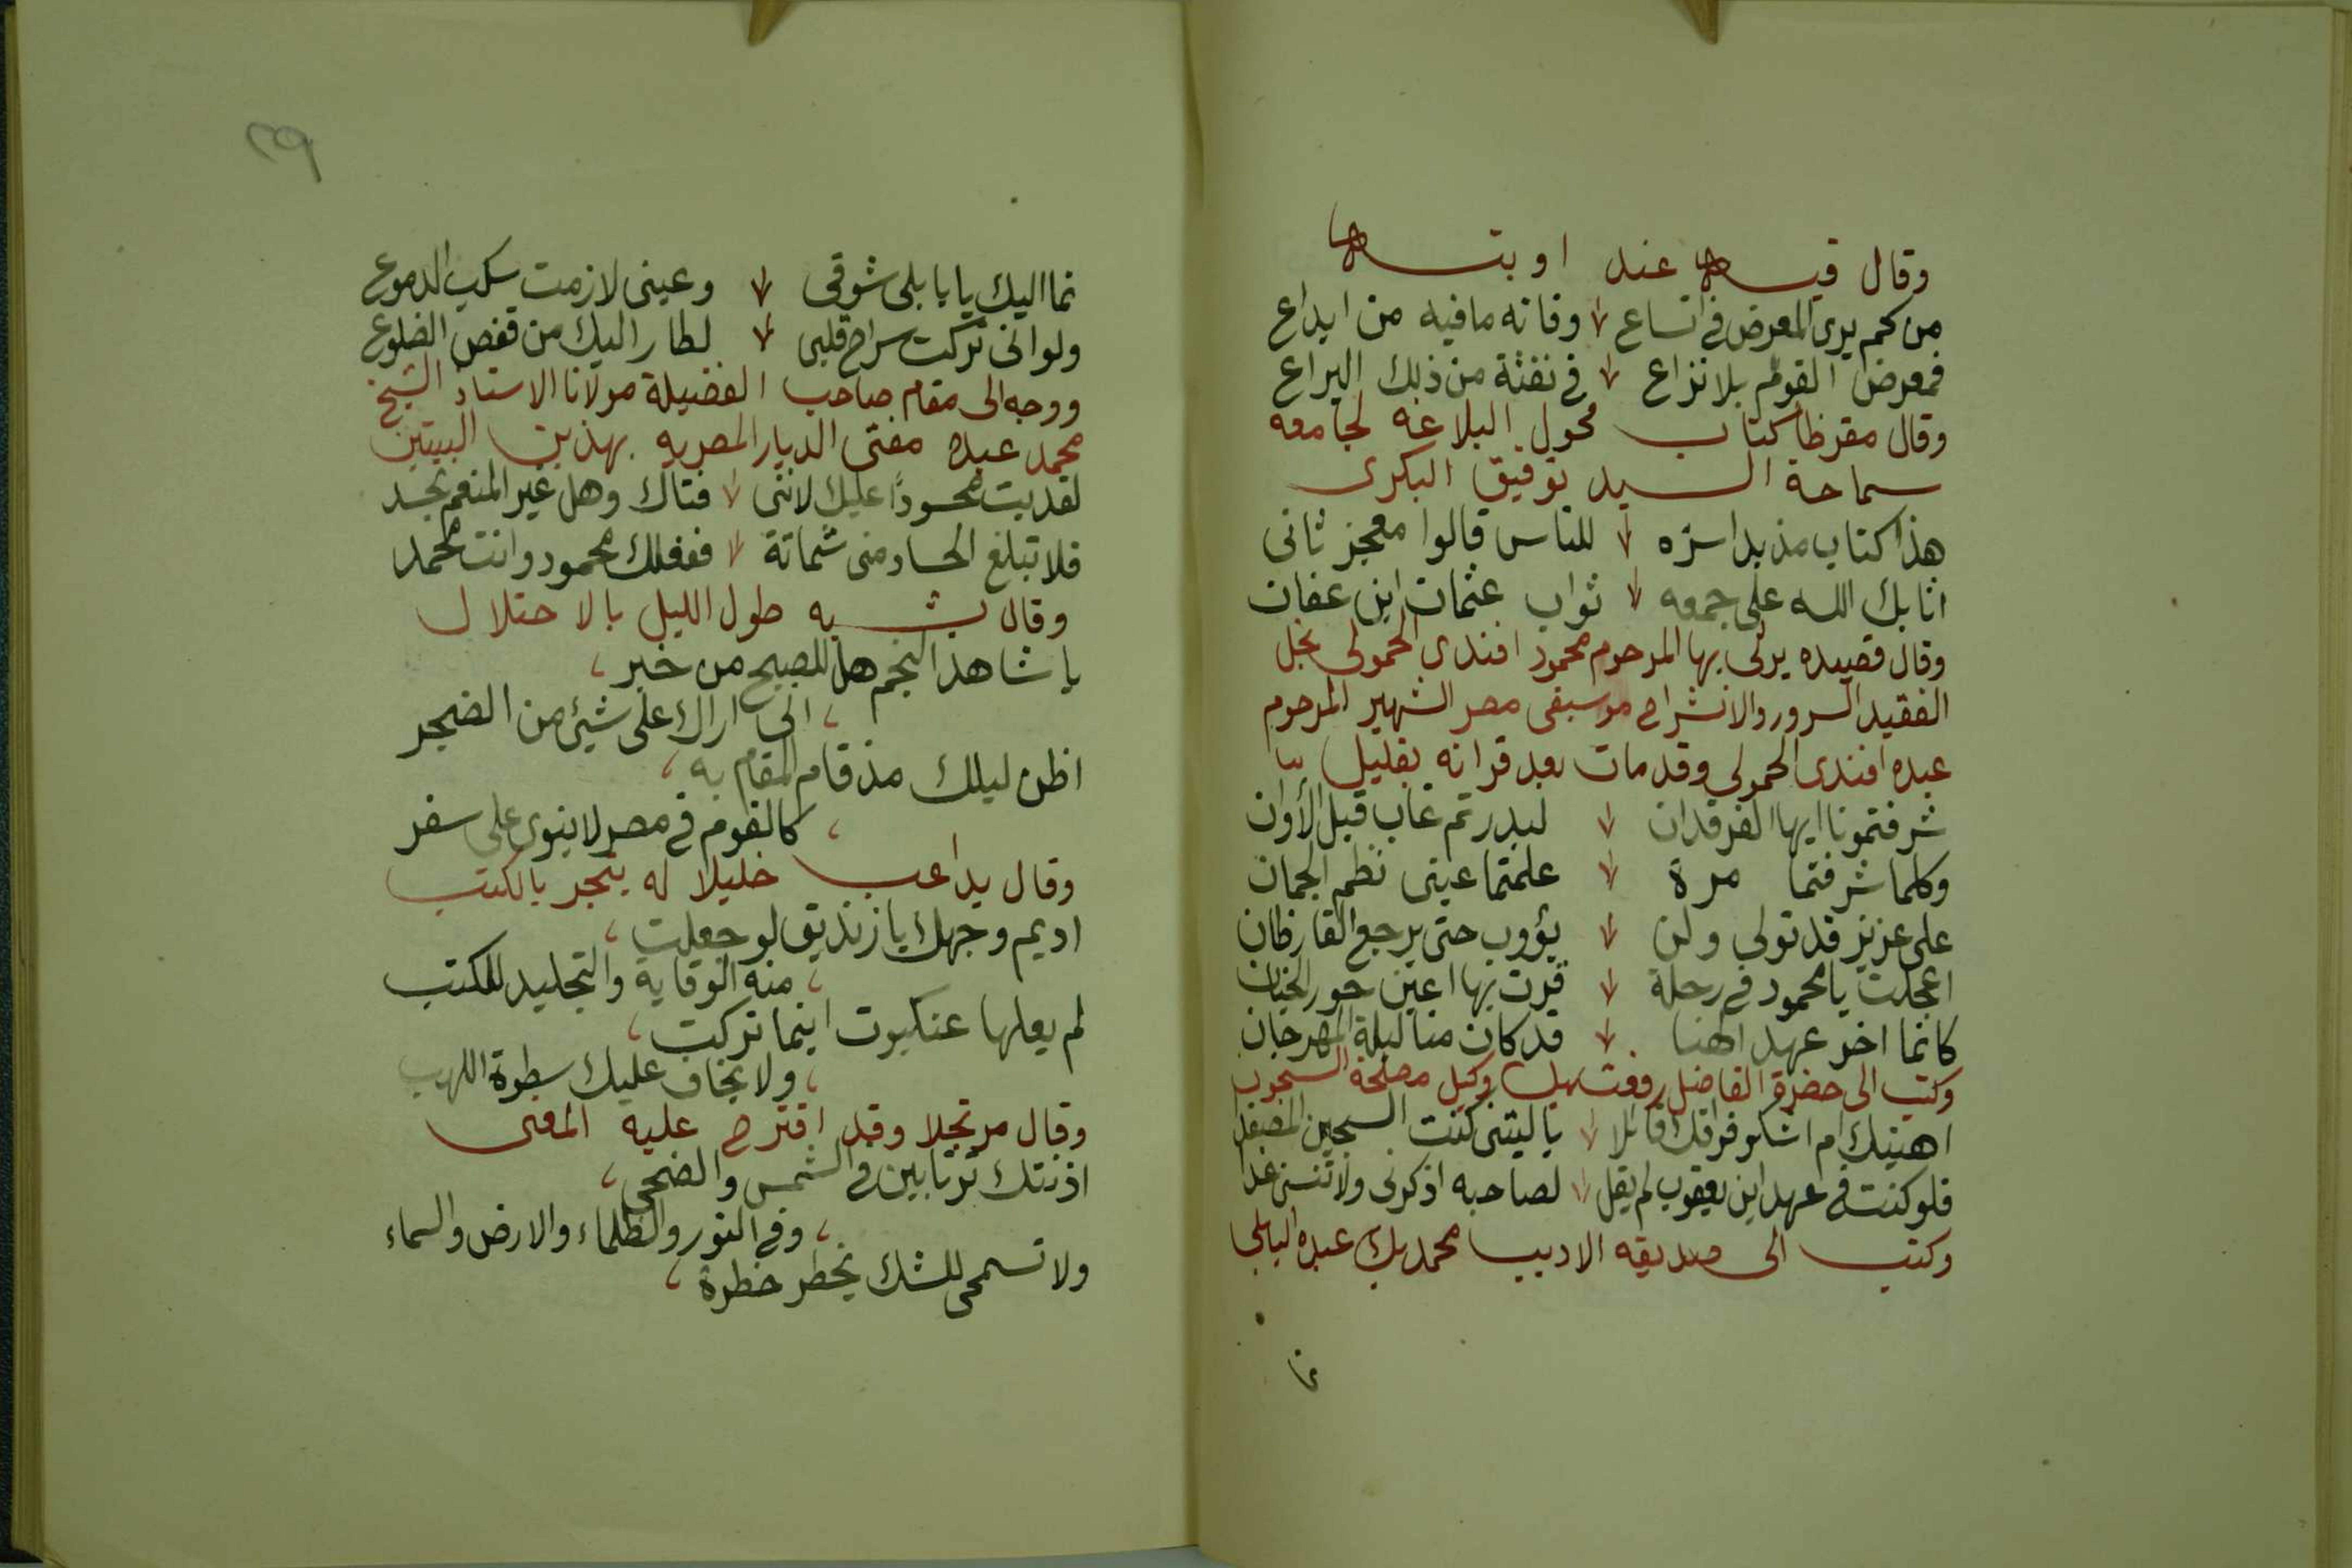 وقال فيه عند اوبته
من كم يرى المعرض في اتساع وفاته مافيه من ابداع
فمعرض القوم بلا نزاع في نفثة من ذلك اليراع
وقال مقرظا كتاب فحول البلاغه لجامعه
سماحة السيد توفيق البكرى
هذا كتاب مذ بدا سره للناس قالوا معجز ثانى
اثابك الله على جمعه ثواب عثمان ابن عفان
وقال قصيده يرثى بها المرحوم محمود افندى الحمولى نجل
الفقيد السرور والانشراح موسيقى مصر الشهير المرحوم
عبده افندى الحمولى وقد مات بعد قرانه بقليل
شرفتمونا ايها الفرقدان لبدر تم غاب قبل الأوان
وكلما شرفتما مرة علمتما عينى نظم الجمان
على عزيز قد تولى ولن يؤوب حتى يرجع القارظان
اعجلت يا محمود في رحلة قرت بها اعين حور الجنان
كانما اخر عهد الهنا قد كان منا ليلة المهرجان
وكتب الى حضرة الفاضل رفعت بك وكيل مصلحة السجون
اهنيك ام اشكو فراقك قائلا يا ليتنى كنت السجين المصفدا
فلو كنت في عهد ابن يعقوب لم يقل لصاحبه اذكرنى ولا تنسنى غدا
وكتب الى صديقه الاديب محمد بك عبده البابلى
نما
نما اليك يا بابلى شوقى وعينى لازمت سكب الدموع
ولو انى تركت سراح قلبى لطار اليك من قفص الضلوع
ووجه الى مقام صاحب الفضيلة مولانا الاستاذ الشيخ
محمد عبده مفتى الديار المصريه بهذين البيتين
لقد بت محسودًا عليك لاننى فتاك وهل غير المنعم يحسد
فلا تبلغ الحساد منى شماتة ففعلك محمود وانت محمد
وقال يشبه طول الليل بالاحتلال
يا شاهد النجم هل للصبح من خبر
انى اراك على شيئ من الضجر
اظن ليلك مذ قام المقام به
كالقوم في مصر لا ينوى على سفر
وقال يداعب خليلا له يتجر بالكتب
اديم وجهك يا زنديق لو جعلت
منه الوقاية والتجليد للكتب
لم يعلها عنكبوت اينما تركت
ولا يخاف عليك سطوة اللهب
وقال مرتجلا وقد اقترح عليه المعنى
اذنتك ترتابين في الشمس والضحى
وفي النور والظلماء والارض والسماء
ولا تسمحى للشك يخطر خطرة
٢٩